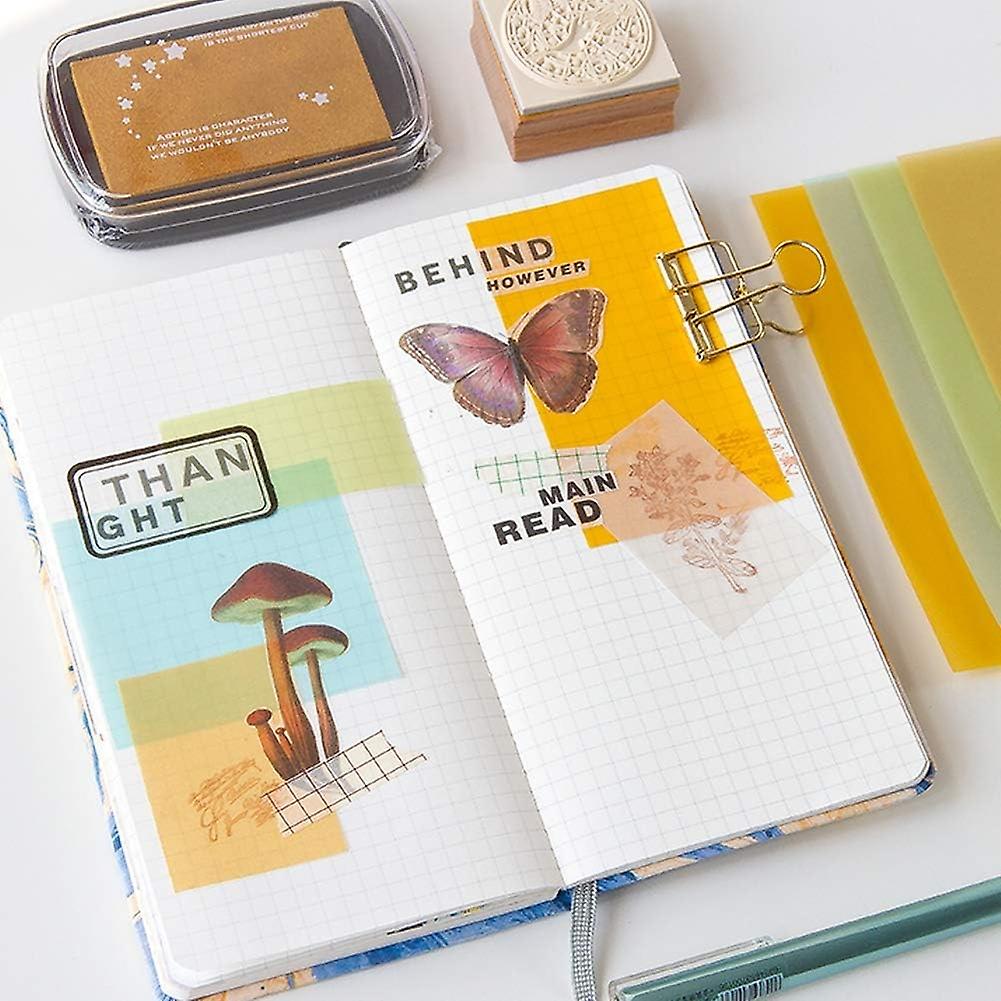 GOOD COMPANY ON THE ROAD
IS THE SHORTEST CUT
ACTION IS CHARACTER
IF WE NEVER DID ANYTHING
WE WOULDN'T BE ANYBODY
BEHIND
HOWEVER
THAN
GHT
MAIN
READ